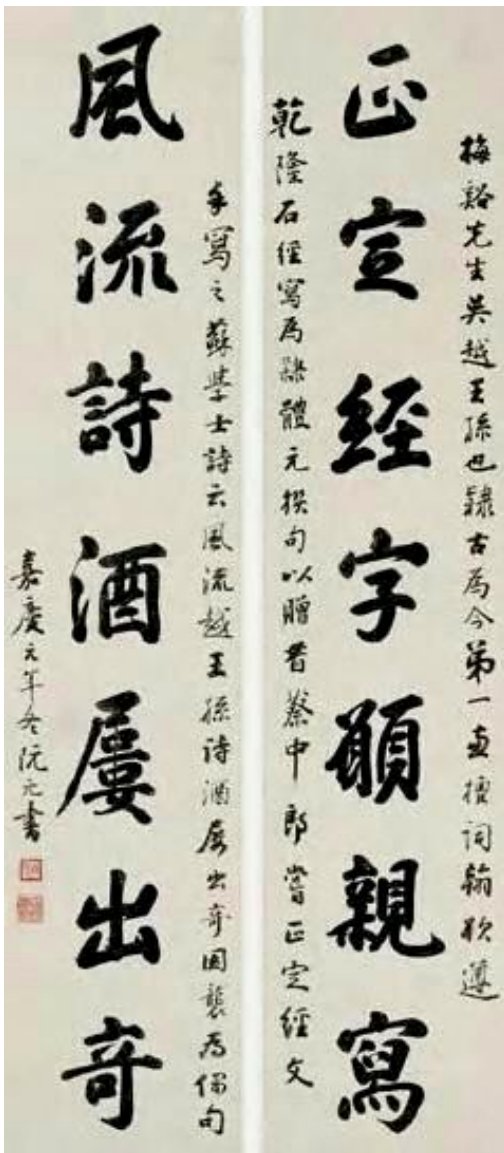 梅谿先生吴越王孫也隸古為今第一擅词翰欲遵
正定經字願親寫
乾隆石經寫為隸體元撰句以贈昔蔡中郎嘗正定經文
手寫之蘇學士詩云風流越王孫詩酒屡出奇因襲為偶句
風流詩酒屢出奇
嘉慶元年冬阮元書